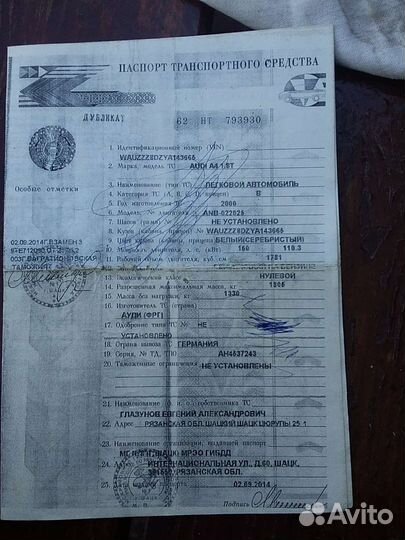 ПАСПОРТ ТРАНСПОРТНОГО СРЕДСТВА
ДУБЛИКАТ
62 НТ 793930
1. Идентификационный номер (VIN)
WAUZZZ8DZYA143665
2. Марка, модель ТС AUDI A4 1.8T
3. Наименование (тип ТС) ЛЕГКОВОЙ АВТОМОБИЛЬ
4. Категория ТС (A, B, C, D, прицеп) B
Особые отметки
5. Год изготовления ТС 2000
6. Модель, № двигателя ANB 022525
7. Шасси (рама) № НЕ УСТАНОВЛЕНО
8. Кузов (кабина, прицеп) № WAUZZZ8DZYA143665
9. Цвет кузова (кабины, прицепа) БЕЛЫЙ(СЕРЕБРИСТЫЙ)
02.09.2014Г.ВЗАМЕН
150 110.3
11. Рабочий объем двигателя, куб. см 1781
ТАМОЖНЯ
13. Экологический класс НУЛЕВОЙ
14. Разрешенная максимальная масса, кг 1805
15. Масса без нагрузки, кг 1330
16. Изготовитель ТС (страна)
АУДИ (ФРГ)
17. Одобрение типа ТС № НЕ
УСТАНОВЛЕНО
18. Страна вывоза ТС ГЕРМАНИЯ
19. Серия, № ТД, ТПО АН4637243
20. Таможенные ограничения НЕ УСТАНОВЛЕНЫ
21. Наименование (ф. и. о.) собственника ТС
ГЛАЗУНОВ ЕВГЕНИЙ АЛЕКСАНДРОВИЧ
22. Адрес РЯЗАНСКАЯ ОБЛ. ШАЦКИЙ ШАЦК ЦЮРУПЫ 25 1
23. Наименование организации, выдавшей паспорт
МРЭО ГИБДД
24. Адрес ИНТЕРНАЦИОНАЛЬНАЯ УЛ., Д.60, ШАЦК,
РЯЗАНСКАЯ ОБЛ.
25. 02.09.2014
М. П.
Подпись
Avito